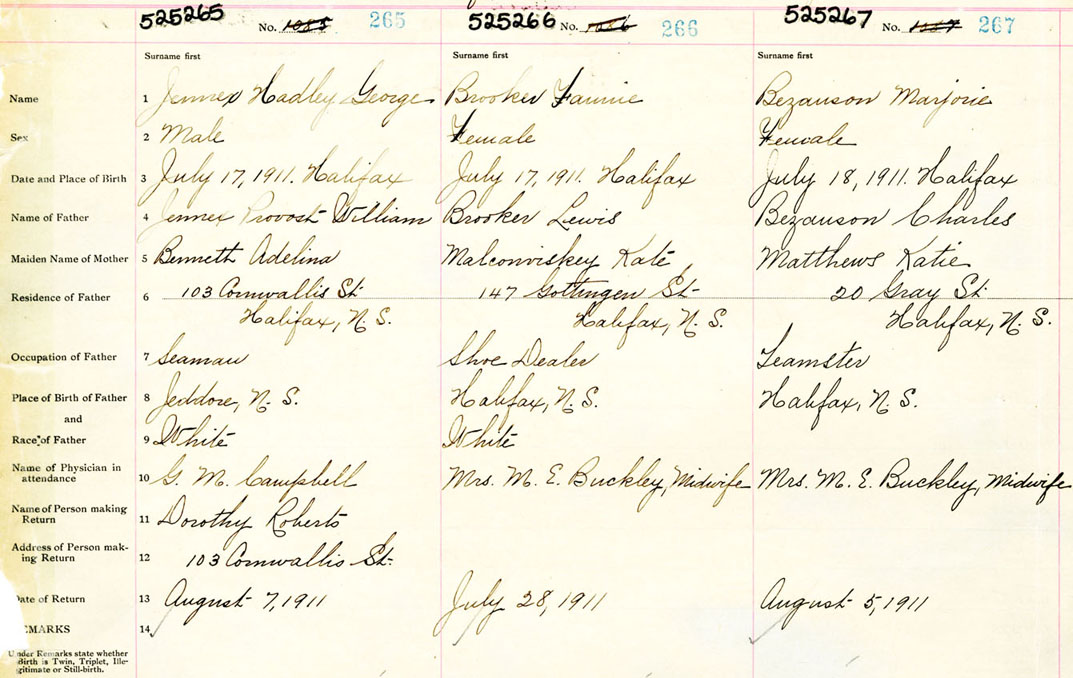 525265 No. 1085 265 525266 No. 1086 266 525267 No. 1087 267
Surname first Surname first Surname first
Name 1 Jennex Hadley George Brooker Fannie Bezanson Marjorie
Sex 2 Male Female Female
Date and Place of Birth 3 July 17, 1911. Halifax July 17, 1911. Halifax July 18, 1911. Halifax
Name of Father 4 Jennex Provost William Brooker Lewis Bezanson Charles
Maiden Name of Mother 5 Bennett Adelina Malconviskey Kate Matthews Katie
Residence of Father 6 103 Cornwallis St. 147 Gottingen St. 20 Gray St.
Halifax, N. S. Halifax, N. S. Halifax, N. S.
Occupation of Father 7 Seaman Shoe Dealer Teamster
Place of Birth of Father 8 Jeddore, N. S. Halifax, N. S. Halifax, N. S.
and
Race of Father 9 White White
Name of Physician in
attendance 10 G. M. Campbell Mrs. M. E. Buckley, Midwife Mrs. M. E. Buckley, Midwife
Name of Person making
Return 11 Dorothy Roberts
Address of Person mak-
ing Return 12 103 Cornwallis St.
Date of Return 13 August 7, 1911 July 28, 1911 August 5, 1911
EMARKS 14
Under Remarks state whether
Birth is Twin, Triplet, Ille-
gitimate or Still-birth.